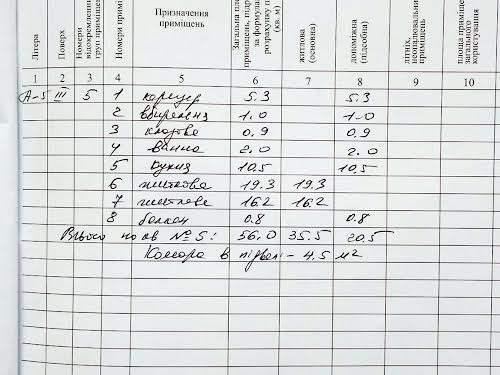 Літера
Поверх
Номери відокремлених груп приміщень
Номери примі
Призначення приміщень
Загальна пло приміщень, підр за формулам розрахунку п (кв. м)
житлова (основна)
допоміжна (підсобна)
літніх, неопалювальних приміщень
площа приміще загального користування
1 2 3 4 5 6 7 8 9 10
А-5 III 5 1 коридор 5.3 5.3
2 вбиральня 1.0 1.0
3 кладова 0,9 0.9
4 ванна 2.0 2.0
5 кухня 10,5 10,5
6 житлова 19.3 19.3
7 житлова 16.2 16.2
8 балкон 0.8 0.8
Всього по кв №5: 56.0 35.5 20.5
Комора в підвалі - 4.5 м2